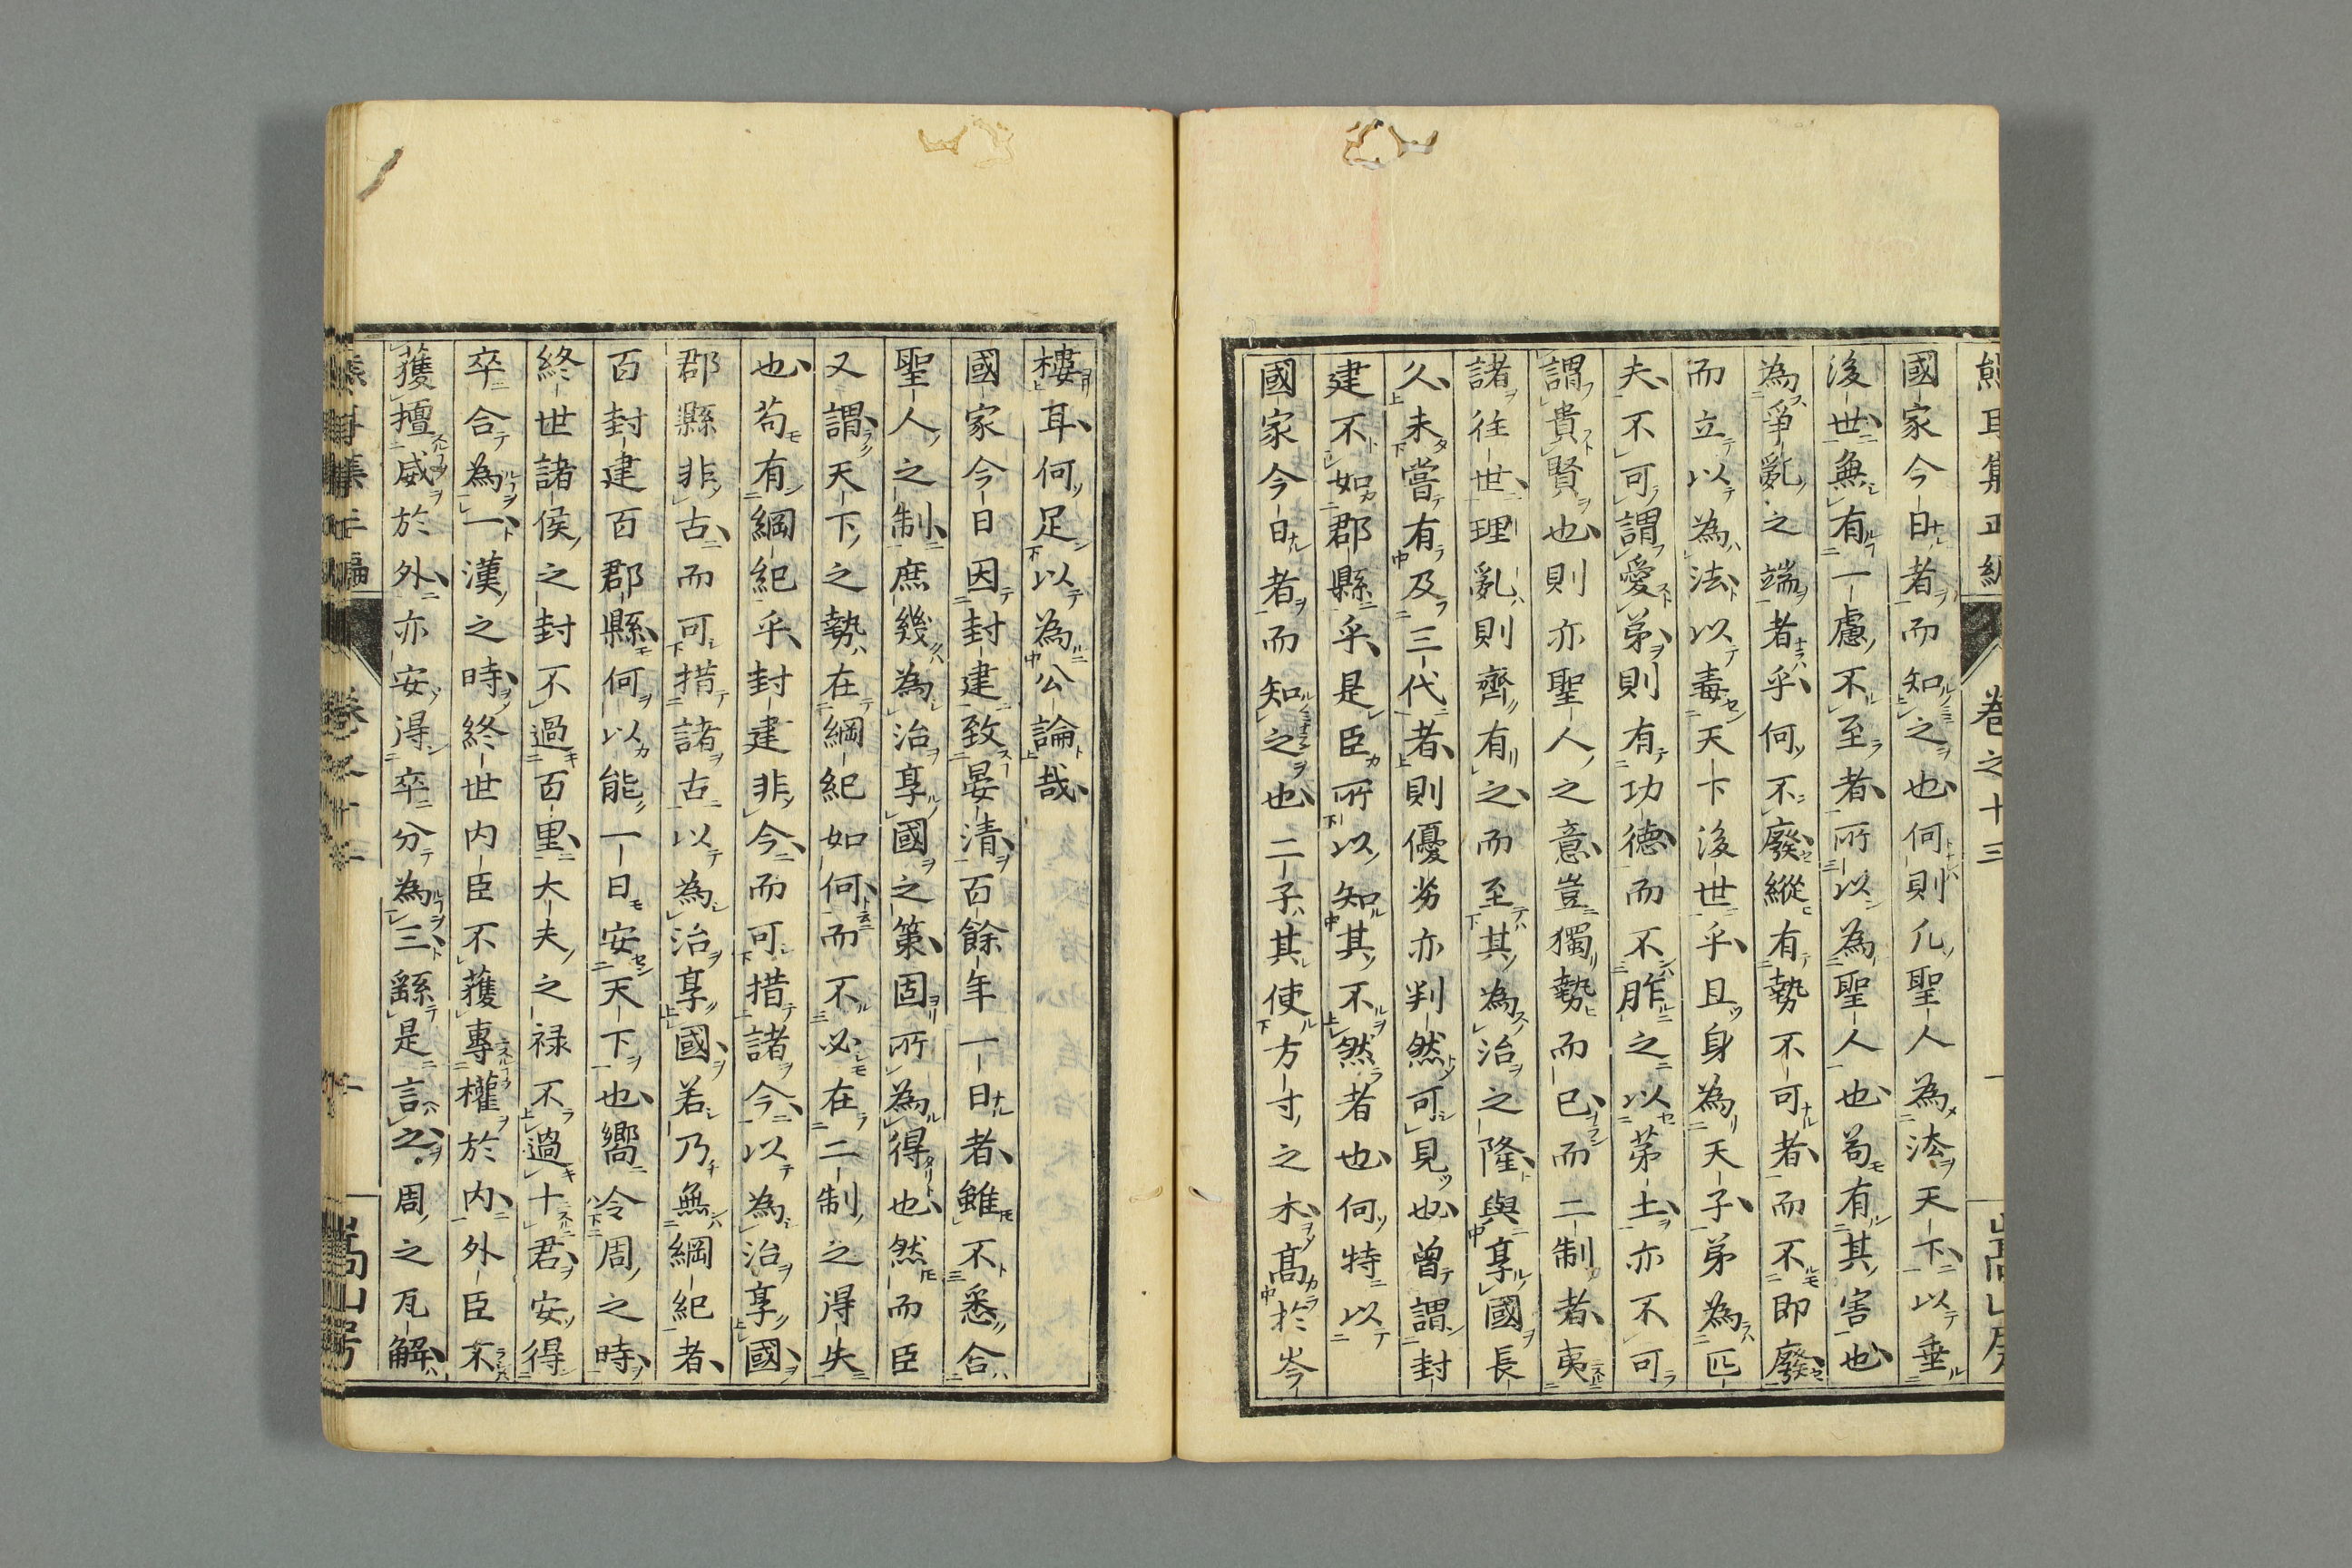 國家今日者而知之也何則凢聖人為法天下以垂
後世無有一慮不至者所以為聖人也苟有其害也
為爭亂之端者乎何不廢縱有勢不可者而不即廢
而立以為法以毒天下後世乎且身為天子弟為匹
夫不可謂愛弟則有功德而不胙之以茅土亦不可
謂貴賢也則亦聖人之意豈獨勢而已而二制者夷
諸往世理亂則齊有之而至其為治之隆與享國長
久未嘗有及三代者則優劣亦判然可見也曾謂封
建不如郡縣乎是臣所以知其不然者也何特以
國家今日者而知之也二子其使方寸之木高於岑
樓耳何足以為公論哉
國家今日因封建致晏清百餘年一日者雖不悉合
聖人之制庶幾為治享國之策固所為得也然而臣
又謂天下之勢在綱紀如何而不必在二制之得失
也苟有綱紀乎封建非今而可措諸今以為治享國
郡縣非古而可措諸古以為治享國若乃無綱紀者
百封建百郡縣何以能一日安天下也嚮令周之時
終世諸侯之封不過百里大夫之禄不過十君安得
卒合為一漢之時終世内臣不獲專權於内外臣不
獲擅威於外亦安得卒分為三繇是言之周之瓦解
卷之十三
嵩山房